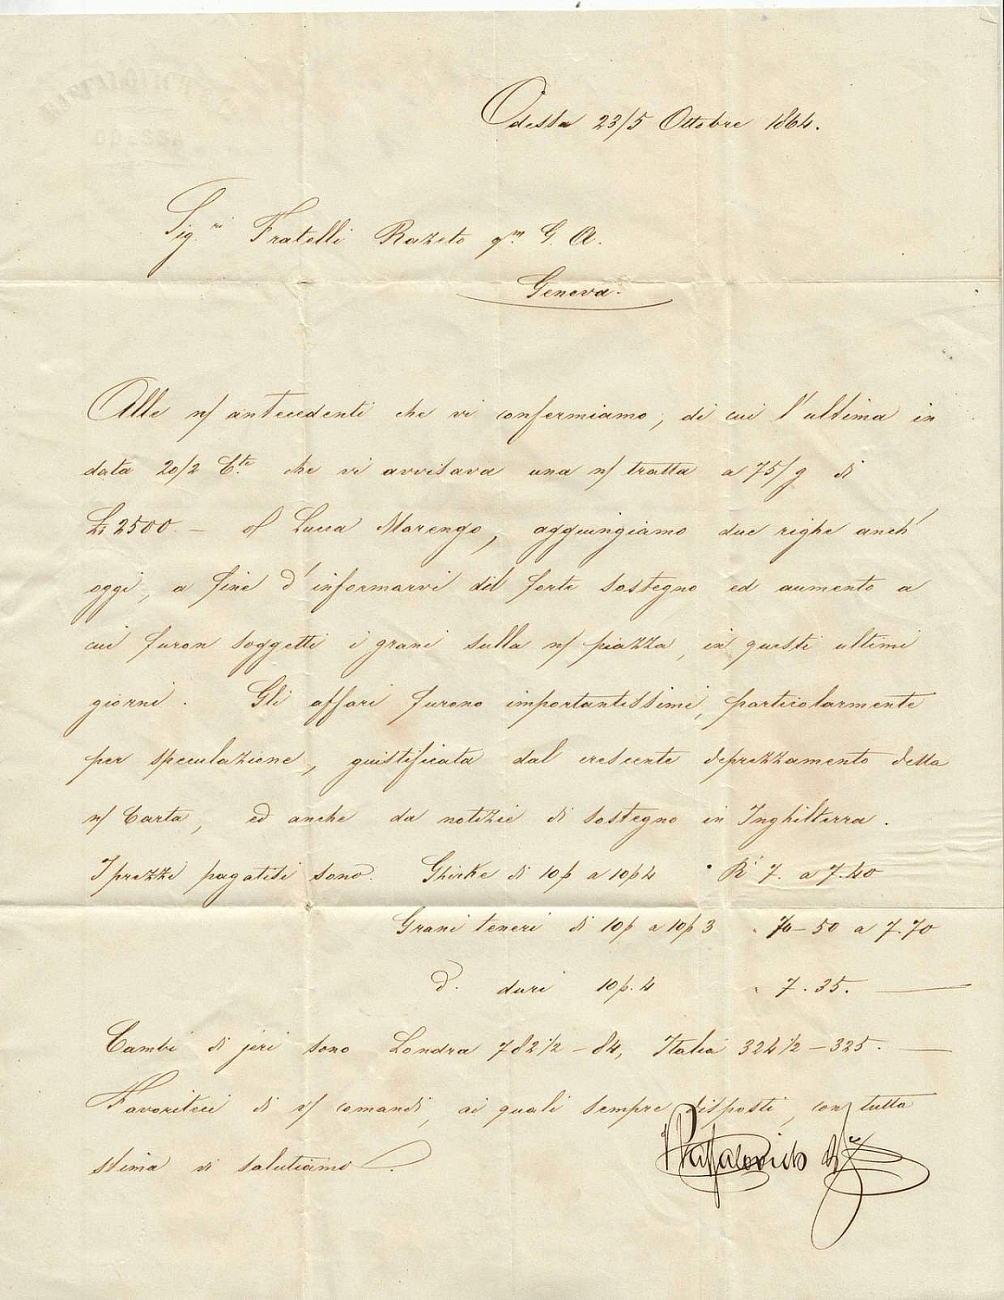 ODESSA
Odessa 23/5 Ottobre 1864.
Sig.ri Fratelli Razeto qm G. A.
Genova.
Alle n/ antecedenti che vi confermiamo, di cui l'ultima in
data 20/2 Cte che vi avvisava una n/ tratta a 75/g di
2500 – o/ Lucca Marengo, aggiungiamo due righe anch'
oggi, a fine d'informarvi del forte sostegno ed aumento a
cui furon soggetti i grani sulla n/ piazza, in questi ultimi
giorni. Gli affari furono importantissimi, particolarmente
per speculazione, giustificata dal crescente deprezzamento della
n/ Carta, ed anche da notizie di sostegno in Inghilterra.
I prezzi pagatisi sono. Ghirke di 10p a 10p4 R 7. a 7.40
Grani teneri di 10p a 10p3 " 7 – 50 a 7.70
d. duri 10p.4 " 7.35.
Cambi di jeri sono Londra 782½ – 84, Italia 324½ – 325.
Favoriteci di v/ comandi, ai quali sempre disposti, con tutta
stima vi salutiamo
Raffalovich & Ce